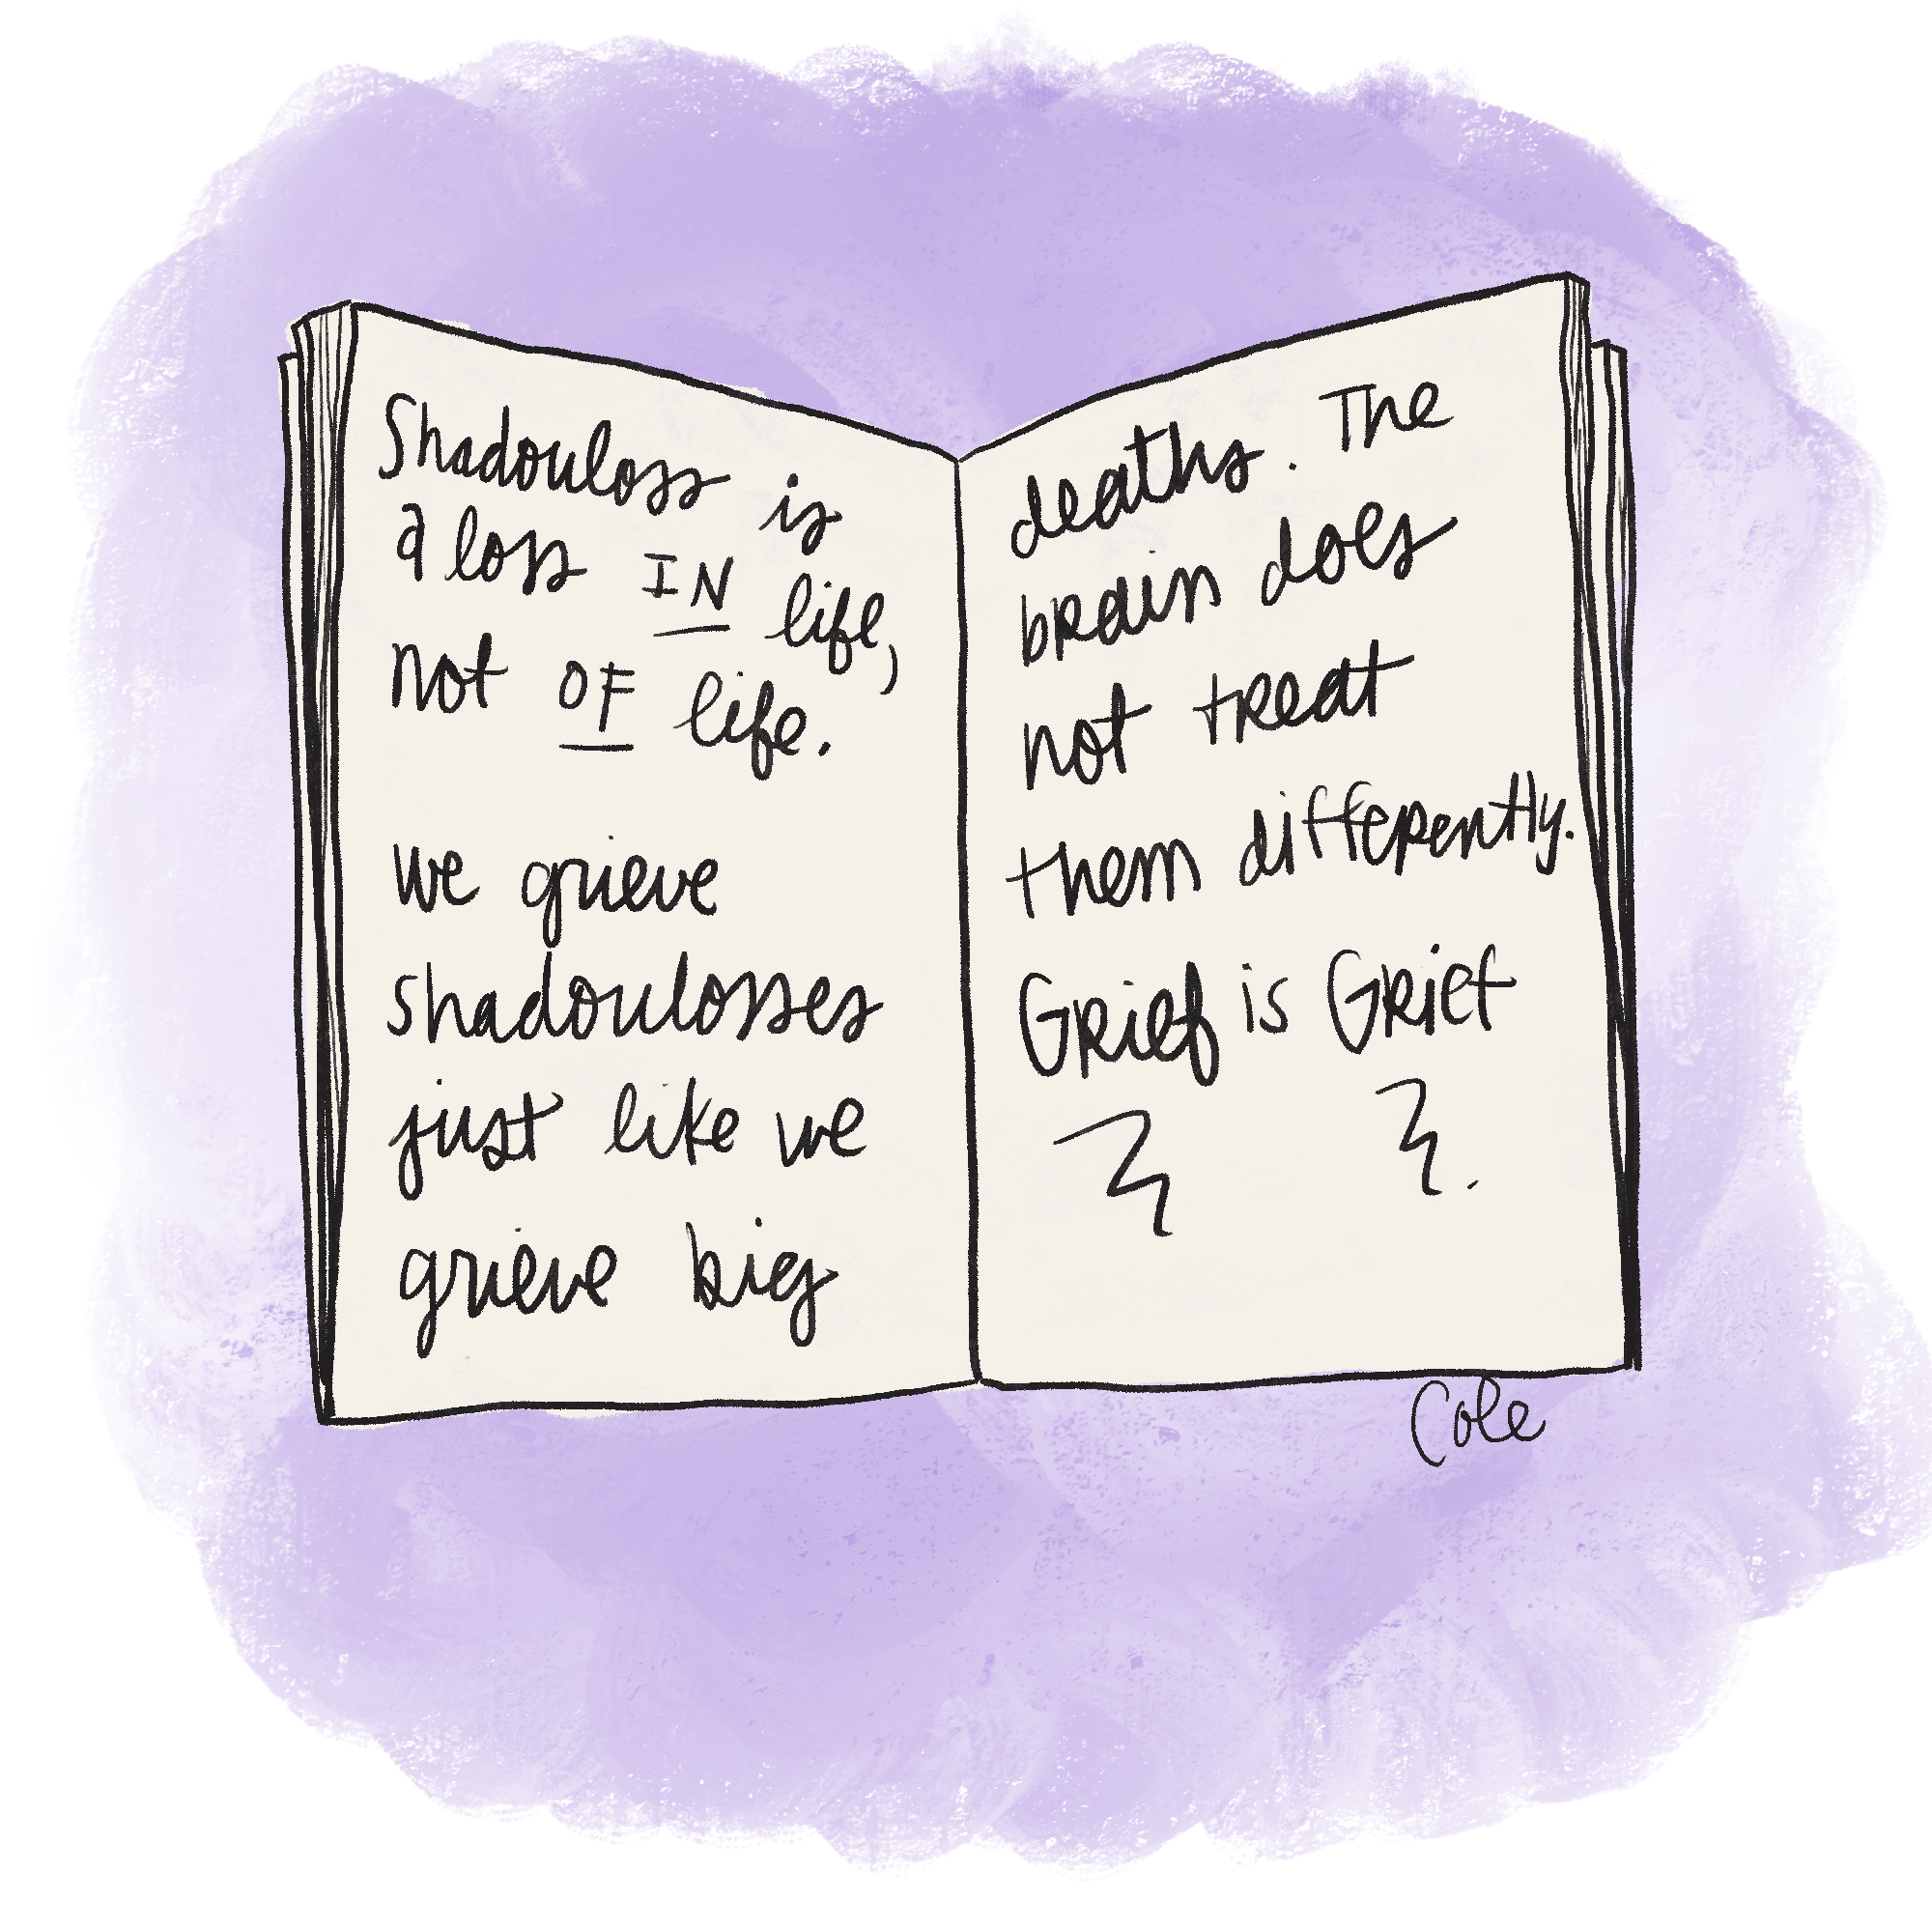 Shadowloss is
a loss IN life,
not OF life.
we grieve
shadowlosses
just like we
grieve big
deaths. The
brain does
not treat
them differently.
Grief is Grief
Cole